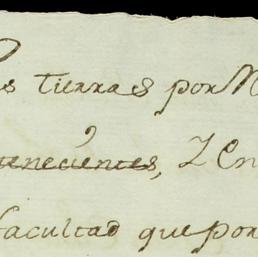 s tierras por M
tenecientes, Z En
facultad que por